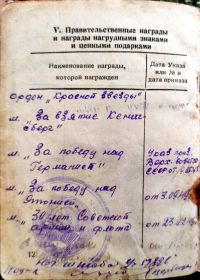 V. Правительственные награды
и награды нагрудными знаками
и ценными подарками
Наименование награды,
которой награжден
Дата Указа
или № и
дата приказа
Орден „Красной Звезды"
м. „За взятие Кениг-
сберг"
м. „За победу над
Германией"
Указ през.
Верх. Совета
СССР от
м. „За победу над
Японией"
от 3.09.45
м. „30 лет Советской
армии и флота
от 22.02.48
12
Нач штаба